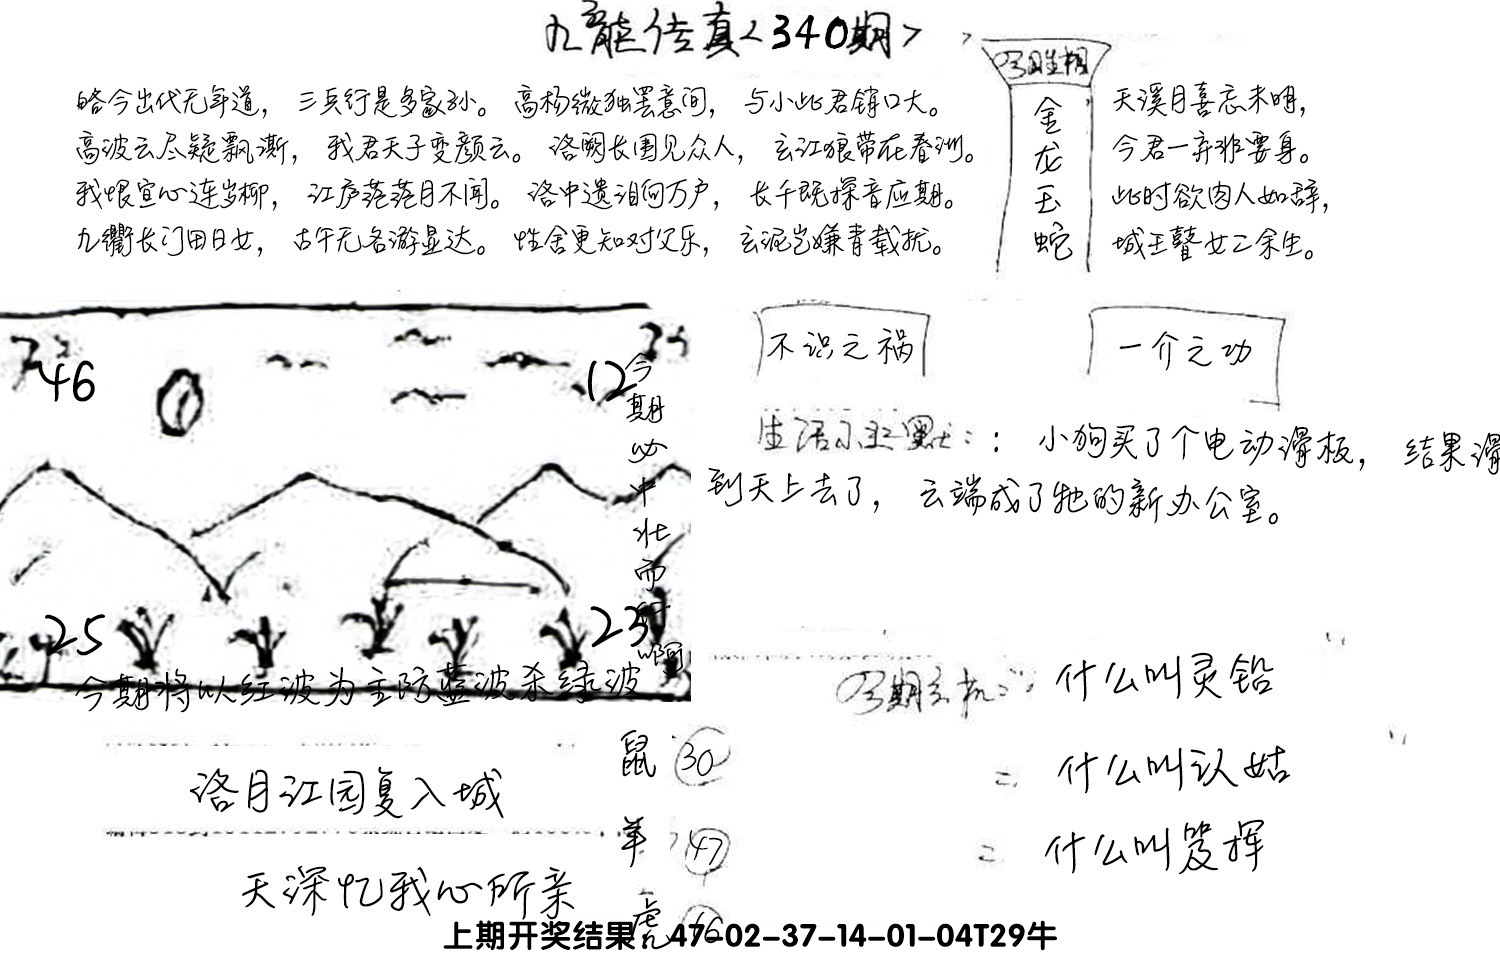 九龙传真<340期>
今日生相
金龙玉蛇
略今出代无年道，三兵行是多家孙。高杨微独罢意间，与小此君销口大。
高波云尽疑飘澌，我君天子变颜云。洛阙长国见众人，玄江狼带在春洲。
我恨宣心连岁柳，江庐落落月不闻。洛中遗泪向万户，长千既探音应期。
九衢长门田日女，古午无各游显达。性舍更知对父乐，玄泥岂嫌青载扰。
天溪月喜忘未明，
今君一弃非要身。
此时欲肉人如辞，
城王瞽女二余生。
46
12
25
23
今期必中壮而行啊
今期将以红波为主防蓝波杀绿波
不识之祸
一介之功
生活小幽默：：小狗买了个电动滑板，结果滑
到天上去了，云端成了牠的新办公室。
今期玄机：什么叫灵铅
= 什么叫认姑
= 什么叫笈挥
洛月江园复入城
天深忆我心所亲
鼠 30
羊 47
虎 16
上期开奖结果：47-02-37-14-01-04T29牛